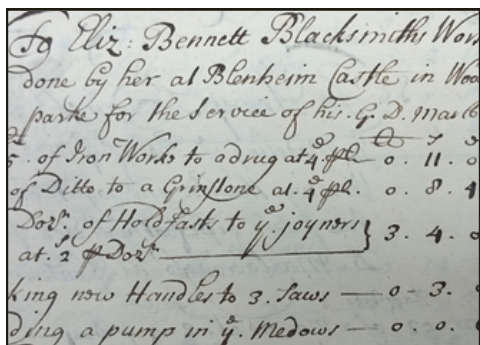 To Eliz: Bennett Blacksmiths Wor
done by her at Blenheim Castle in Woo
parke for the Service of his G. D. Marlb
of Iron Works to a drug at 4d ꝑl. — 0. 11. 0
of Ditto to a Grinstone at 4d ꝑl. — 0. 8. 4
Dozn. of Holdfasts to ye. joyners } 3. 4. 0
at 2s ꝑ Dozn.
king new Handles to 3. Saws — 0 - 3.
ding a pump in ye. Medows — 0. 0.